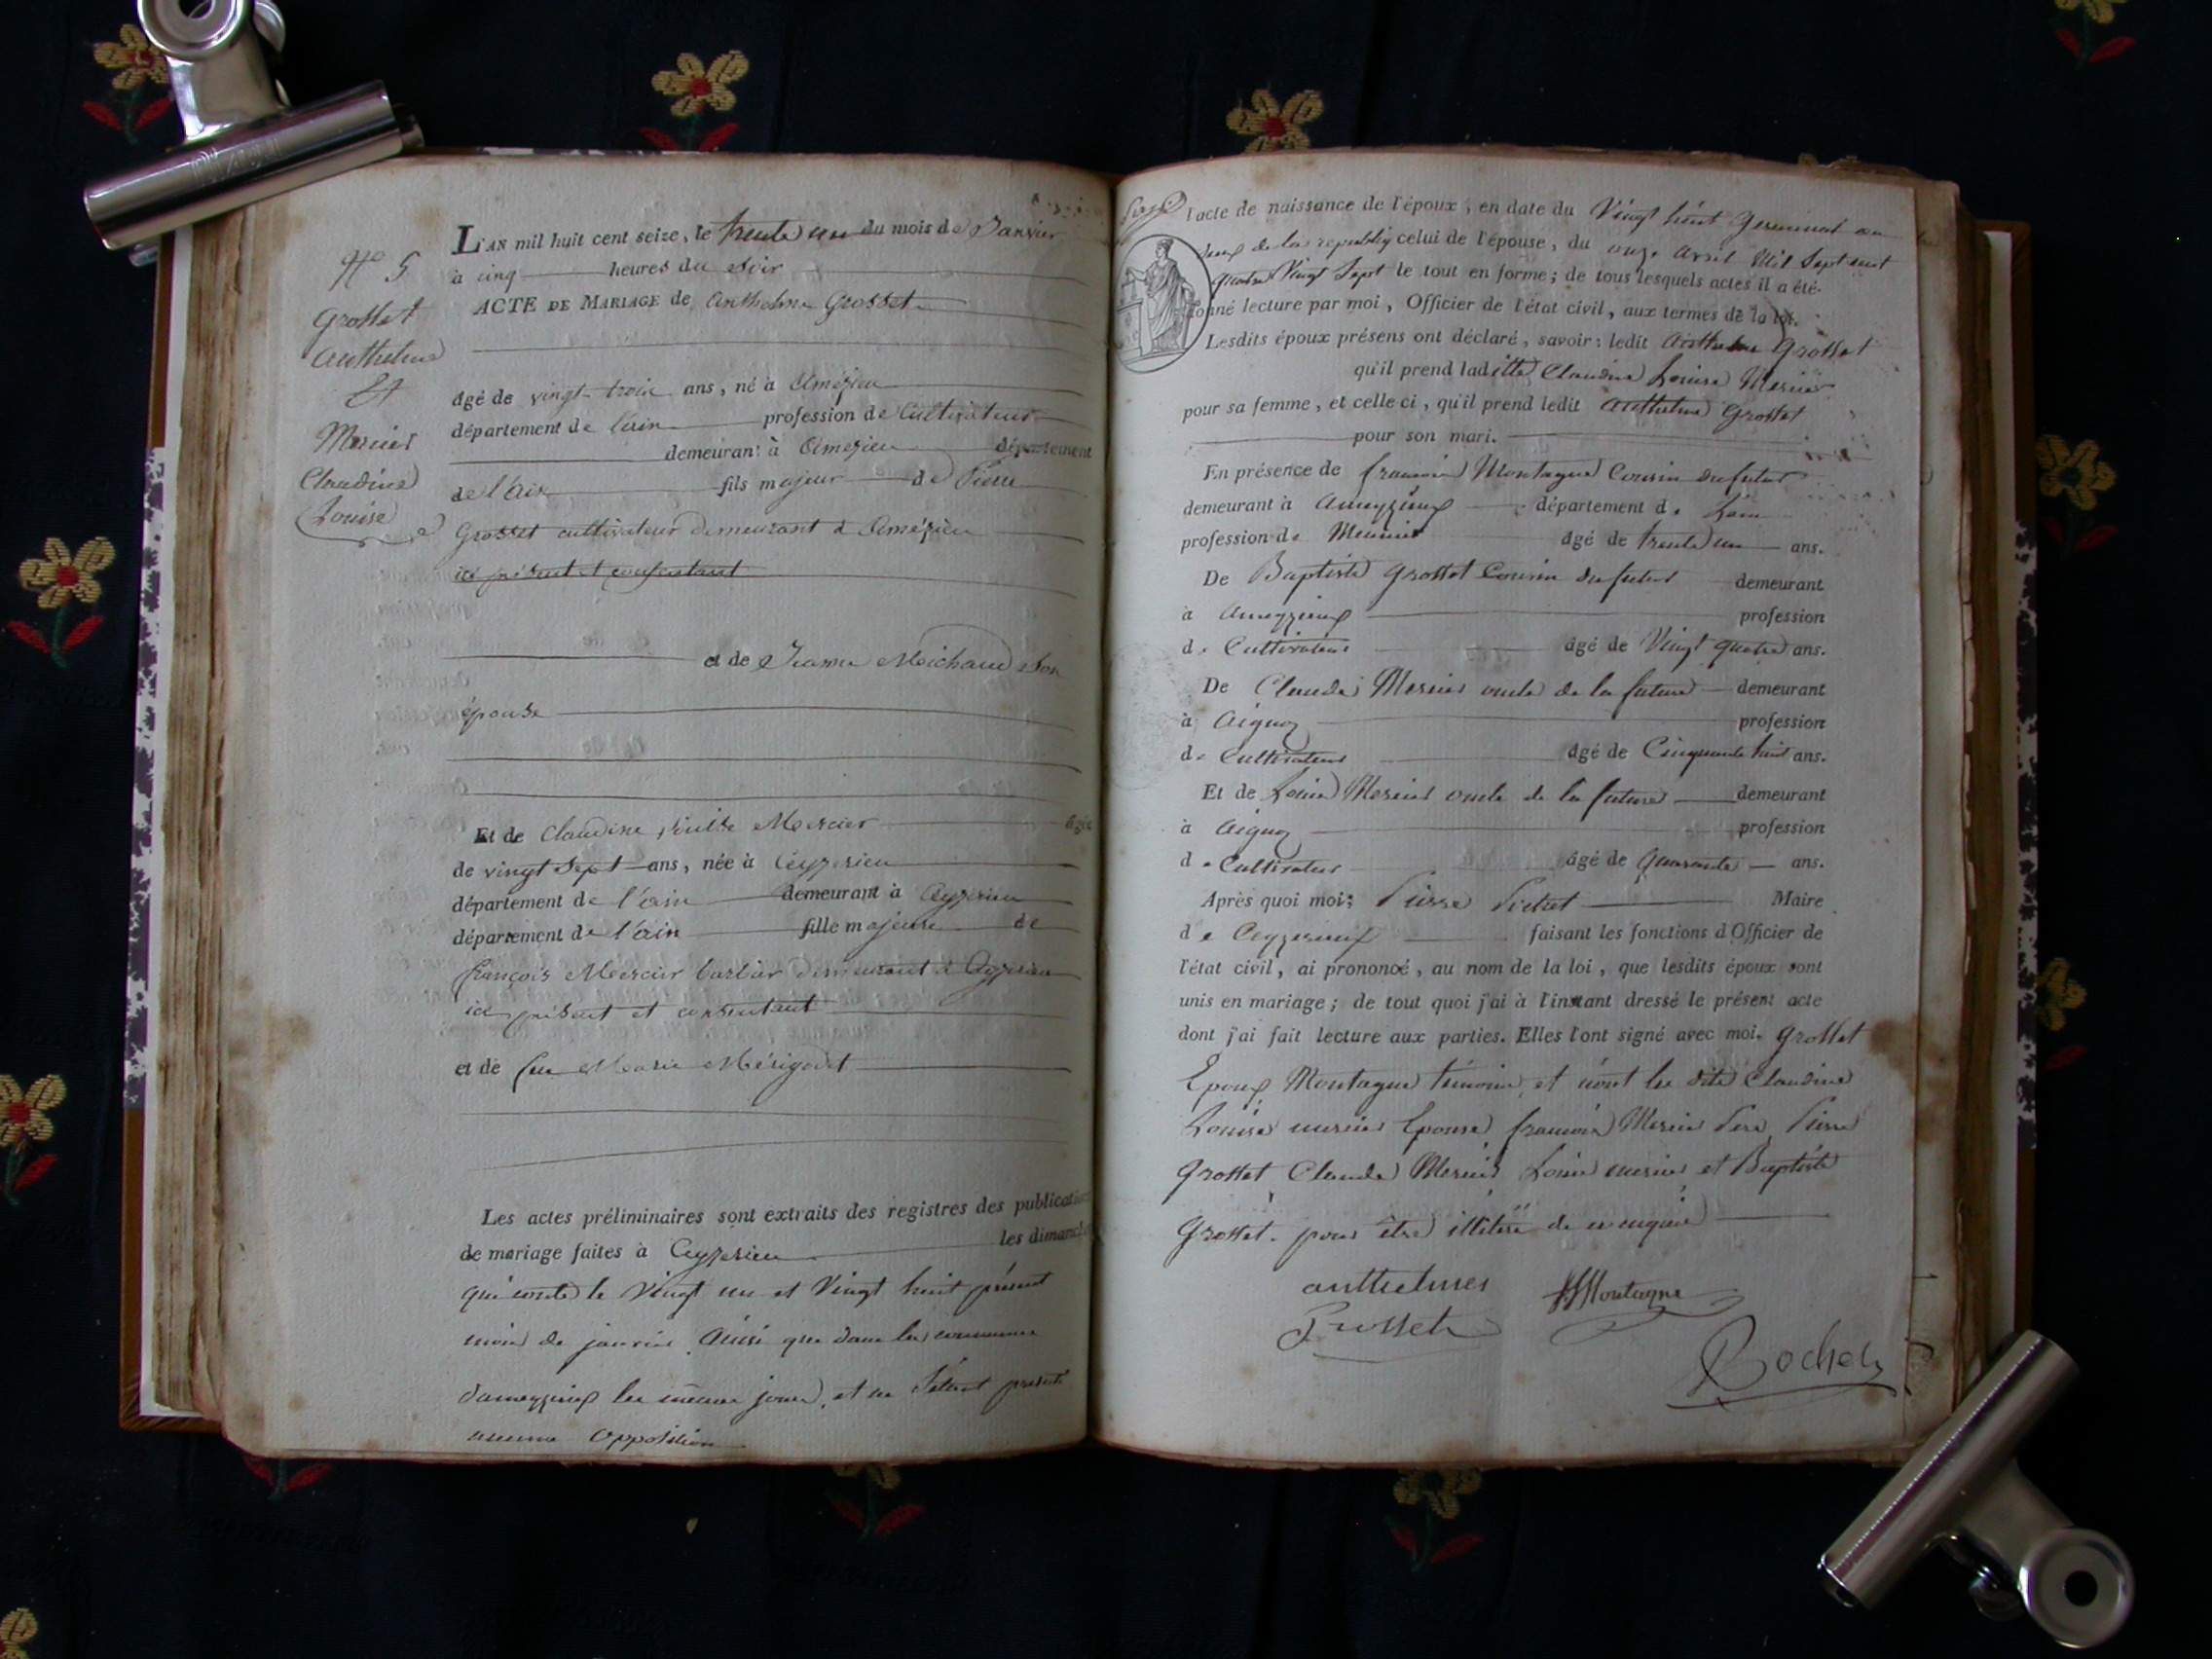 N.º 5
Grosset
Anthelme
Et
Mercier
Claudine
Louise
L'AN mil huit cent seize, le trente un du mois de Janvier
à cinq heures du soir
ACTE DE MARIAGE de Anthelme Grosset
âgé de vingt trois ans, né à Amézieu
département de l'ain profession de Cultivateur
demeurant à Amezieu département
de l'Ain fils majeur de Pierre
Grosset cultivateur demeurant à Amézieu
ici présent et consentant
et de Jeanne Michaud son
épouse
Et de Claudine Louise Mercier âgée
de vingt sept ans, née à Ceyzerieu
département de l'ain demeurant à Ceyzerieu
département de l'ain fille majeure de
françois Mercier demeurant à Ceyzerieu
ici présent et consentant
et de feu Marie Mérigodet
Les actes préliminaires sont extraits des registres des publications
de mariage faites à Ceyzerieu les dimanches
le Vingt un et Vingt huit présent
mois de janvier. Ainsi que dans la commune
dameyzieux les mêmes jours, et ne s'étant présenté
aucune opposition
l'acte de naissance de l'époux, en date du Vingt huit Germinal an
deux de la republiq celui de l'épouse, du onze avril Mil Sept cent
quatre Vingt Sept le tout en forme; de tous lesquels actes il a été
donné lecture par moi, Officier de l'état civil, aux termes de la loi.
Lesdits époux présens ont déclaré, savoir: ledit Anthelme Grosset
qu'il prend laditte Claudine Louise Mercier
pour sa femme, et celle ci, qu'il prend ledit Anthelme Grosset
pour son mari.
En présence de françois Montagne Cousin du futur
demeurant à Ameyzieux département de Lain
profession de Meunier âgé de trente un ans.
De Baptiste Grosset Cousin du futur demeurant
à Ameyzieux profession
de Cultivateur âgé de Vingt quatre ans.
De Claude Mercier oncle de la future demeurant
à Aignoz profession
de Cultivateur âgé de Cinquante huit ans.
Et de Louis Mercier oncle de la future demeurant
à Aignoz profession
de Cultivateur âgé de quarante ans.
Après quoi moi; Pierre Maire
de Ceyzerieux faisant les fonctions d'Officier de
l'état civil, ai prononcé, au nom de la loi, que lesdits époux sont
unis en mariage; de tout quoi j'ai à l'instant dressé le présent acte
dont j'ai fait lecture aux parties. Elles l'ont signé avec moi. Grosset
Epoux Montagne témoin, et non les dits Claudine
Louise mercier Epouse, françois Mercier Pere, Pierre
Grosset Claude Mercier Louis mercier et Baptiste
Grosset. pour être illitéré de ce enquis
anthelmes
Grosset
Montagne
Rochet